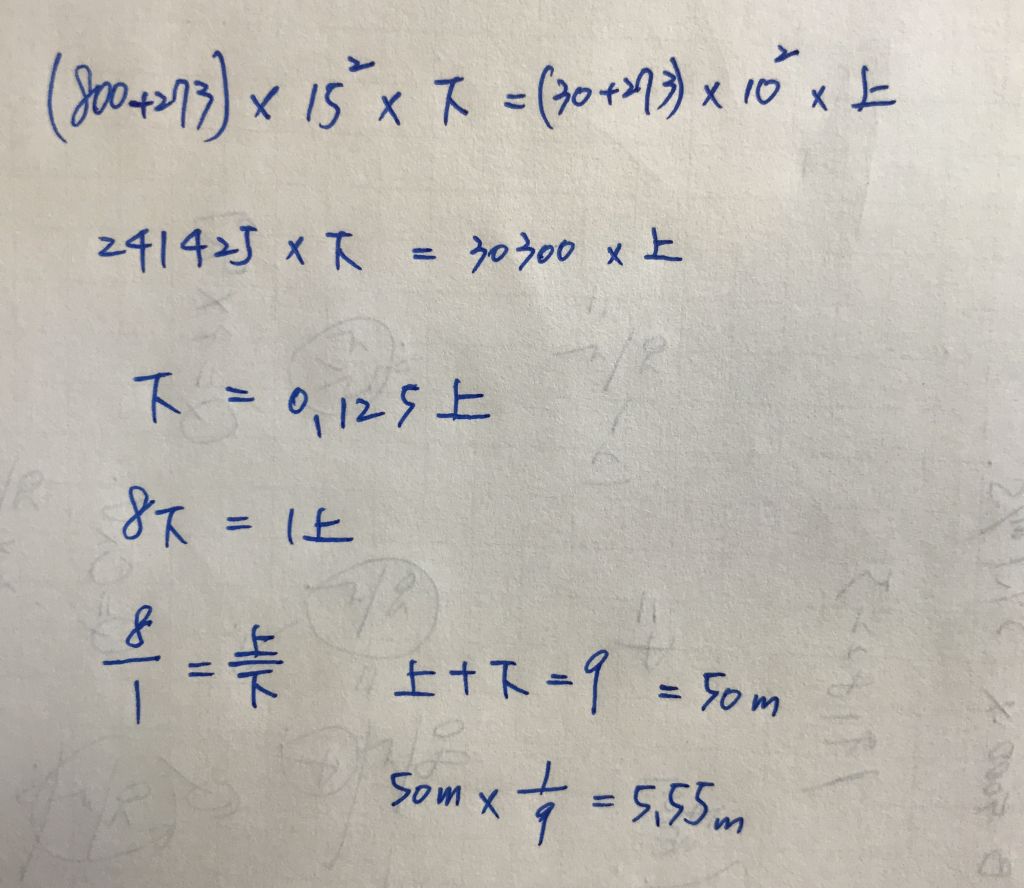 (800+273) × 15² × 下 = (30+273) × 10² × 上
241425 × 下 = 30300 × 上
下 = 0,125 上
8下 = 1上
8/1 = 上/下 上+下=9 = 50m
50m × 1/9 = 5,55m